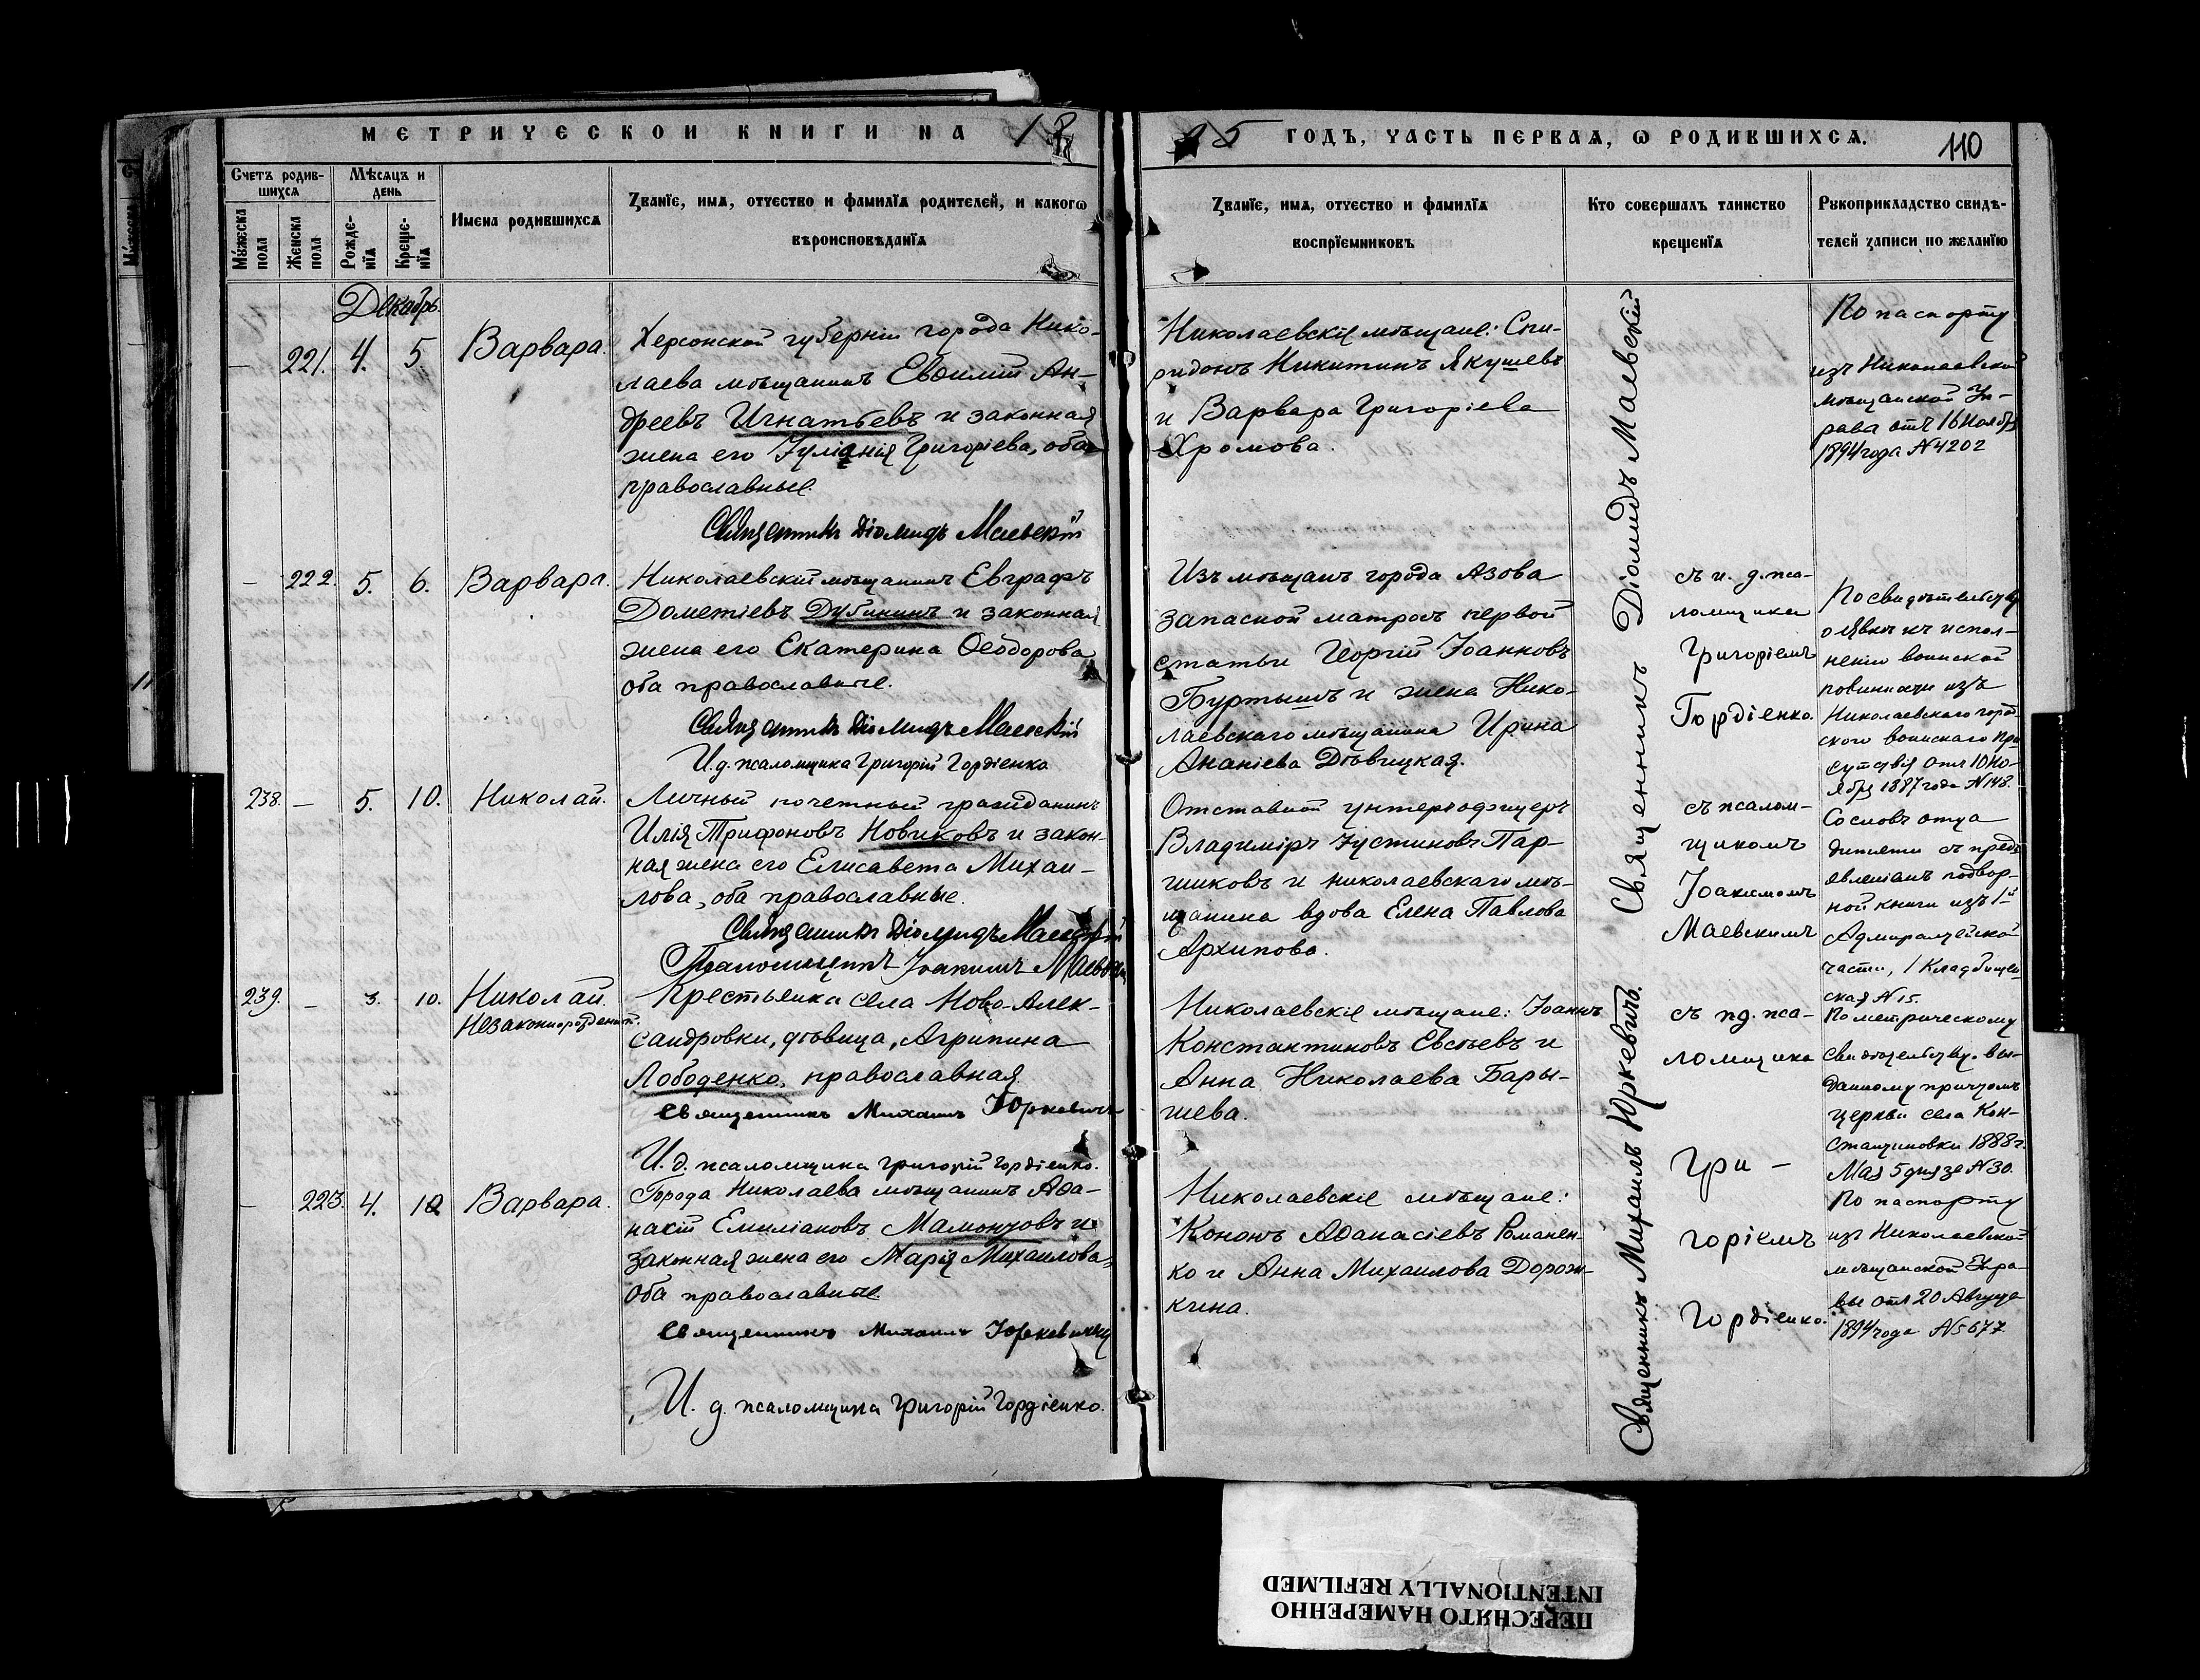 МЕТРИЧЕСКОЙ КНИГИ НА 18
95 ГОДЪ, ЧАСТЬ ПЕРВАЯ, Ѡ РОДИВШИХСЯ.
110
Счетъ родив-
шихся
Мужеска
пола
Женска
пола
Мѣсяцъ и
день
Рожде-
нїя
Креще-
нїя
Имена родившихся
Званїе, имя, отчество и фамилїя родителей, и какогѡ
вѣроисповѣданїя
Званїе, имя, отчество и фамилїя
воспрїемниковъ
Кто совершалъ таинство
крещенїя
Рукоприкладство свидѣ-
телей записи по желанїю
Декабрь.
— 221. 4. 5. Варвара.
Херсонской губерніи города Нико-
лаева мѣщанинъ Евѳимій Ан-
дреевъ Игнатьевъ и законная
жена его Іуліанія Григоріева, оба
православные.
Священникъ Діомидъ Маевскій
Николаевскіе мѣщане: Спи-
ридонъ Никитинъ Якушевъ
и Варвара Григоріева
Хромова.
По паспорту
изъ Николаевской
мѣщанской Уп-
рава отъ 16 Ноября
1894 года № 4202
— 222. 5. 6. Варвара.
Николаевскій мѣщанинъ Евграфъ
Дометіевъ Дубининъ и законная
жена его Екатерина Ѳеодорова
оба православные.
Священникъ Діомидъ Маевскій
И. д. псаломщика Григорій Гордіенко
Изъ мѣщанъ города Азова
запасной матросъ первой
статьи Георгій Іоанновъ
Буртышъ и жена Нико-
лаевскаго мѣщанина Ирина
Ананіева Дѣвицкая.
Священникъ Діомидъ Маевскій
съ и. д. пса-
ломщика
Григоріемъ
Гордіенко.
По свидѣтельству
о явкѣ къ испол-
ненію воинской
повинности изъ
Николаевскаго город-
ского воинскаго При-
сутствія отъ 10 Но-
ября 1887 года № 148.
238. — 5. 10. Николай.
Личный почетный гражданинъ
Илія Трифоновъ Новиковъ и закон-
ная жена его Елисавета Михаи-
лова, оба православные.
Священникъ Діомидъ Маевскій
Псаломщикъ Іоакимъ Маевскій
Отставной унтерофицеръ
Владиміръ Іустиновъ Пар-
шиковъ и николаевскаго мѣ-
щанина вдова Елена Павлова
Архипова.
съ псалом-
щикомъ
Іоакимомъ
Маевскимъ
Со словъ отца
дитяти съ предъ
явленіемъ подвор-
ной книги изъ 1-й
Адмиралтейской
части, 1 Кладбищен-
ская № 15.
239. — 3. 10. Николай.
Незаконнорожденный.
Крестьянка села Ново-Алек-
сандровки, дѣвица, Агрипина
Лободенко, православная.
Священникъ Михаилъ Юркевичъ
И. д. псаломщика Григорій Гордіенко.
Николаевскіе мѣщане: Іоаннъ
Константиновъ Евсѣевъ и
Анна Николаева Бары-
шева.
Священникъ Михаилъ Юркевичъ.
съ и д. пса-
ломщика
Гри-
горіемъ
Гордіенко.
По метрическому
свидѣтельству, вы-
данному причтомъ
церкви села Кон-
стантиновки 1888 г.
Мая 5 дня за № 30.
— 223. 4. 10. Варвара.
Города Николаева мѣщанинъ Аѳа-
насій Емиліановъ Мамонтовъ и
законная жена его Марія Михаилова,
оба православные.
Священникъ Михаилъ Юркевичъ
И. д. псаломщика Григорій Гордіенко.
Николаевскіе мѣщане:
Кононъ Аѳанасіевъ Романен-
ко и Анна Михаилова Дорож-
кина.
По паспорту
изъ Николаевской
мѣщанской Упра-
вы отъ 20 Августа
1894 года № 5677.
ПЕРЕСНЯТО НАМЕРЕННО
INTENTIONALLY REFILMED